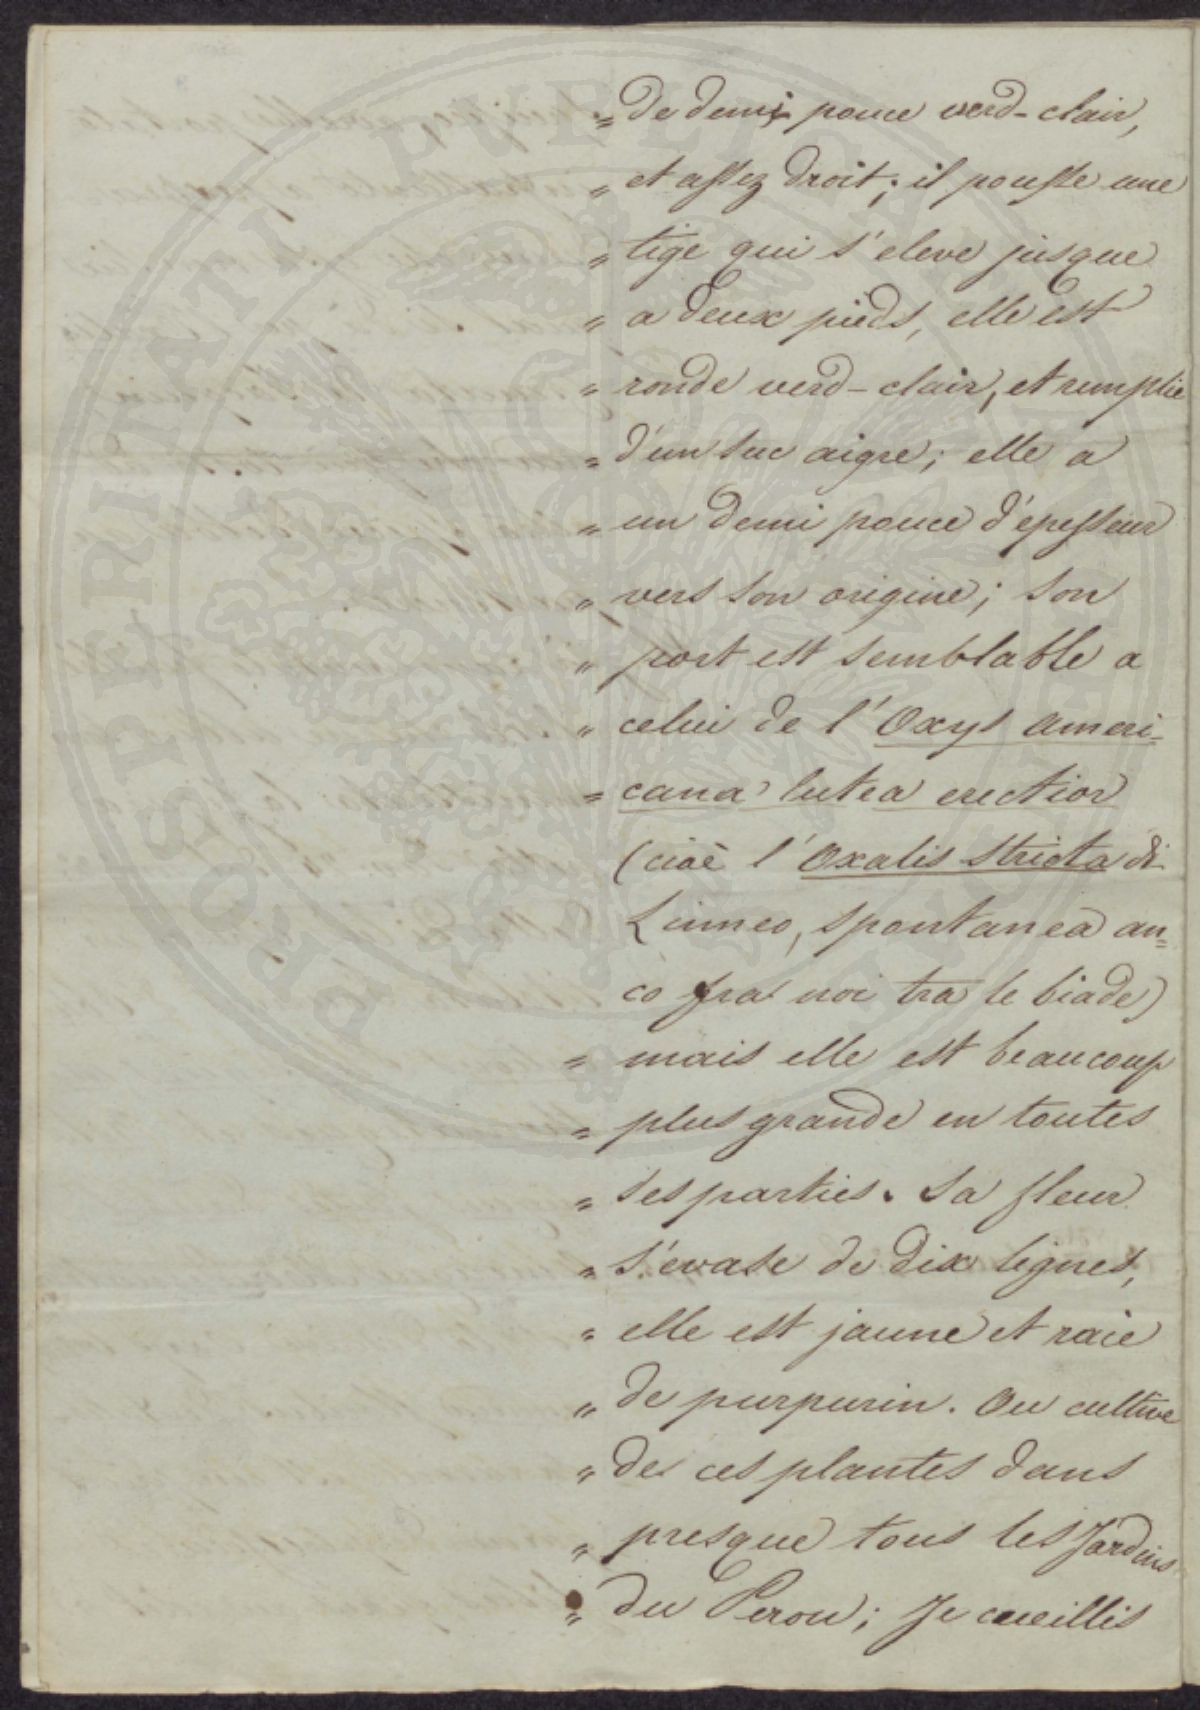 „ de demi pouce verd-clair,
„ et assez droit; il pousse une
„ tige qui s'eleve jusque
„ a deux pieds, elle est
„ ronde verd-clair, et remplie
„ d'un suc aigre; elle a
„ un demi pouce d'epesseur
„ vers son origine; son
„ port est semblable a
„ celui de l'Oxys Ameri-
„ cana lutea erectior
(cioè l'Oxalis stricta di
Linneo, spontanea an=
co fra noi tra le biade)
„ mais elle est beaucoup
„ plus grande en toutes
„ ses parties. Sa fleur
„ s'evase de dix lignes,
„ elle est jaune et raie
„ de purpurin. On cultive
„ de ces plantes dans
„ presque tous les Jardins
„ du Perou; Je cueillis
PROSPERITATI PUBLICAE AUGENDAE